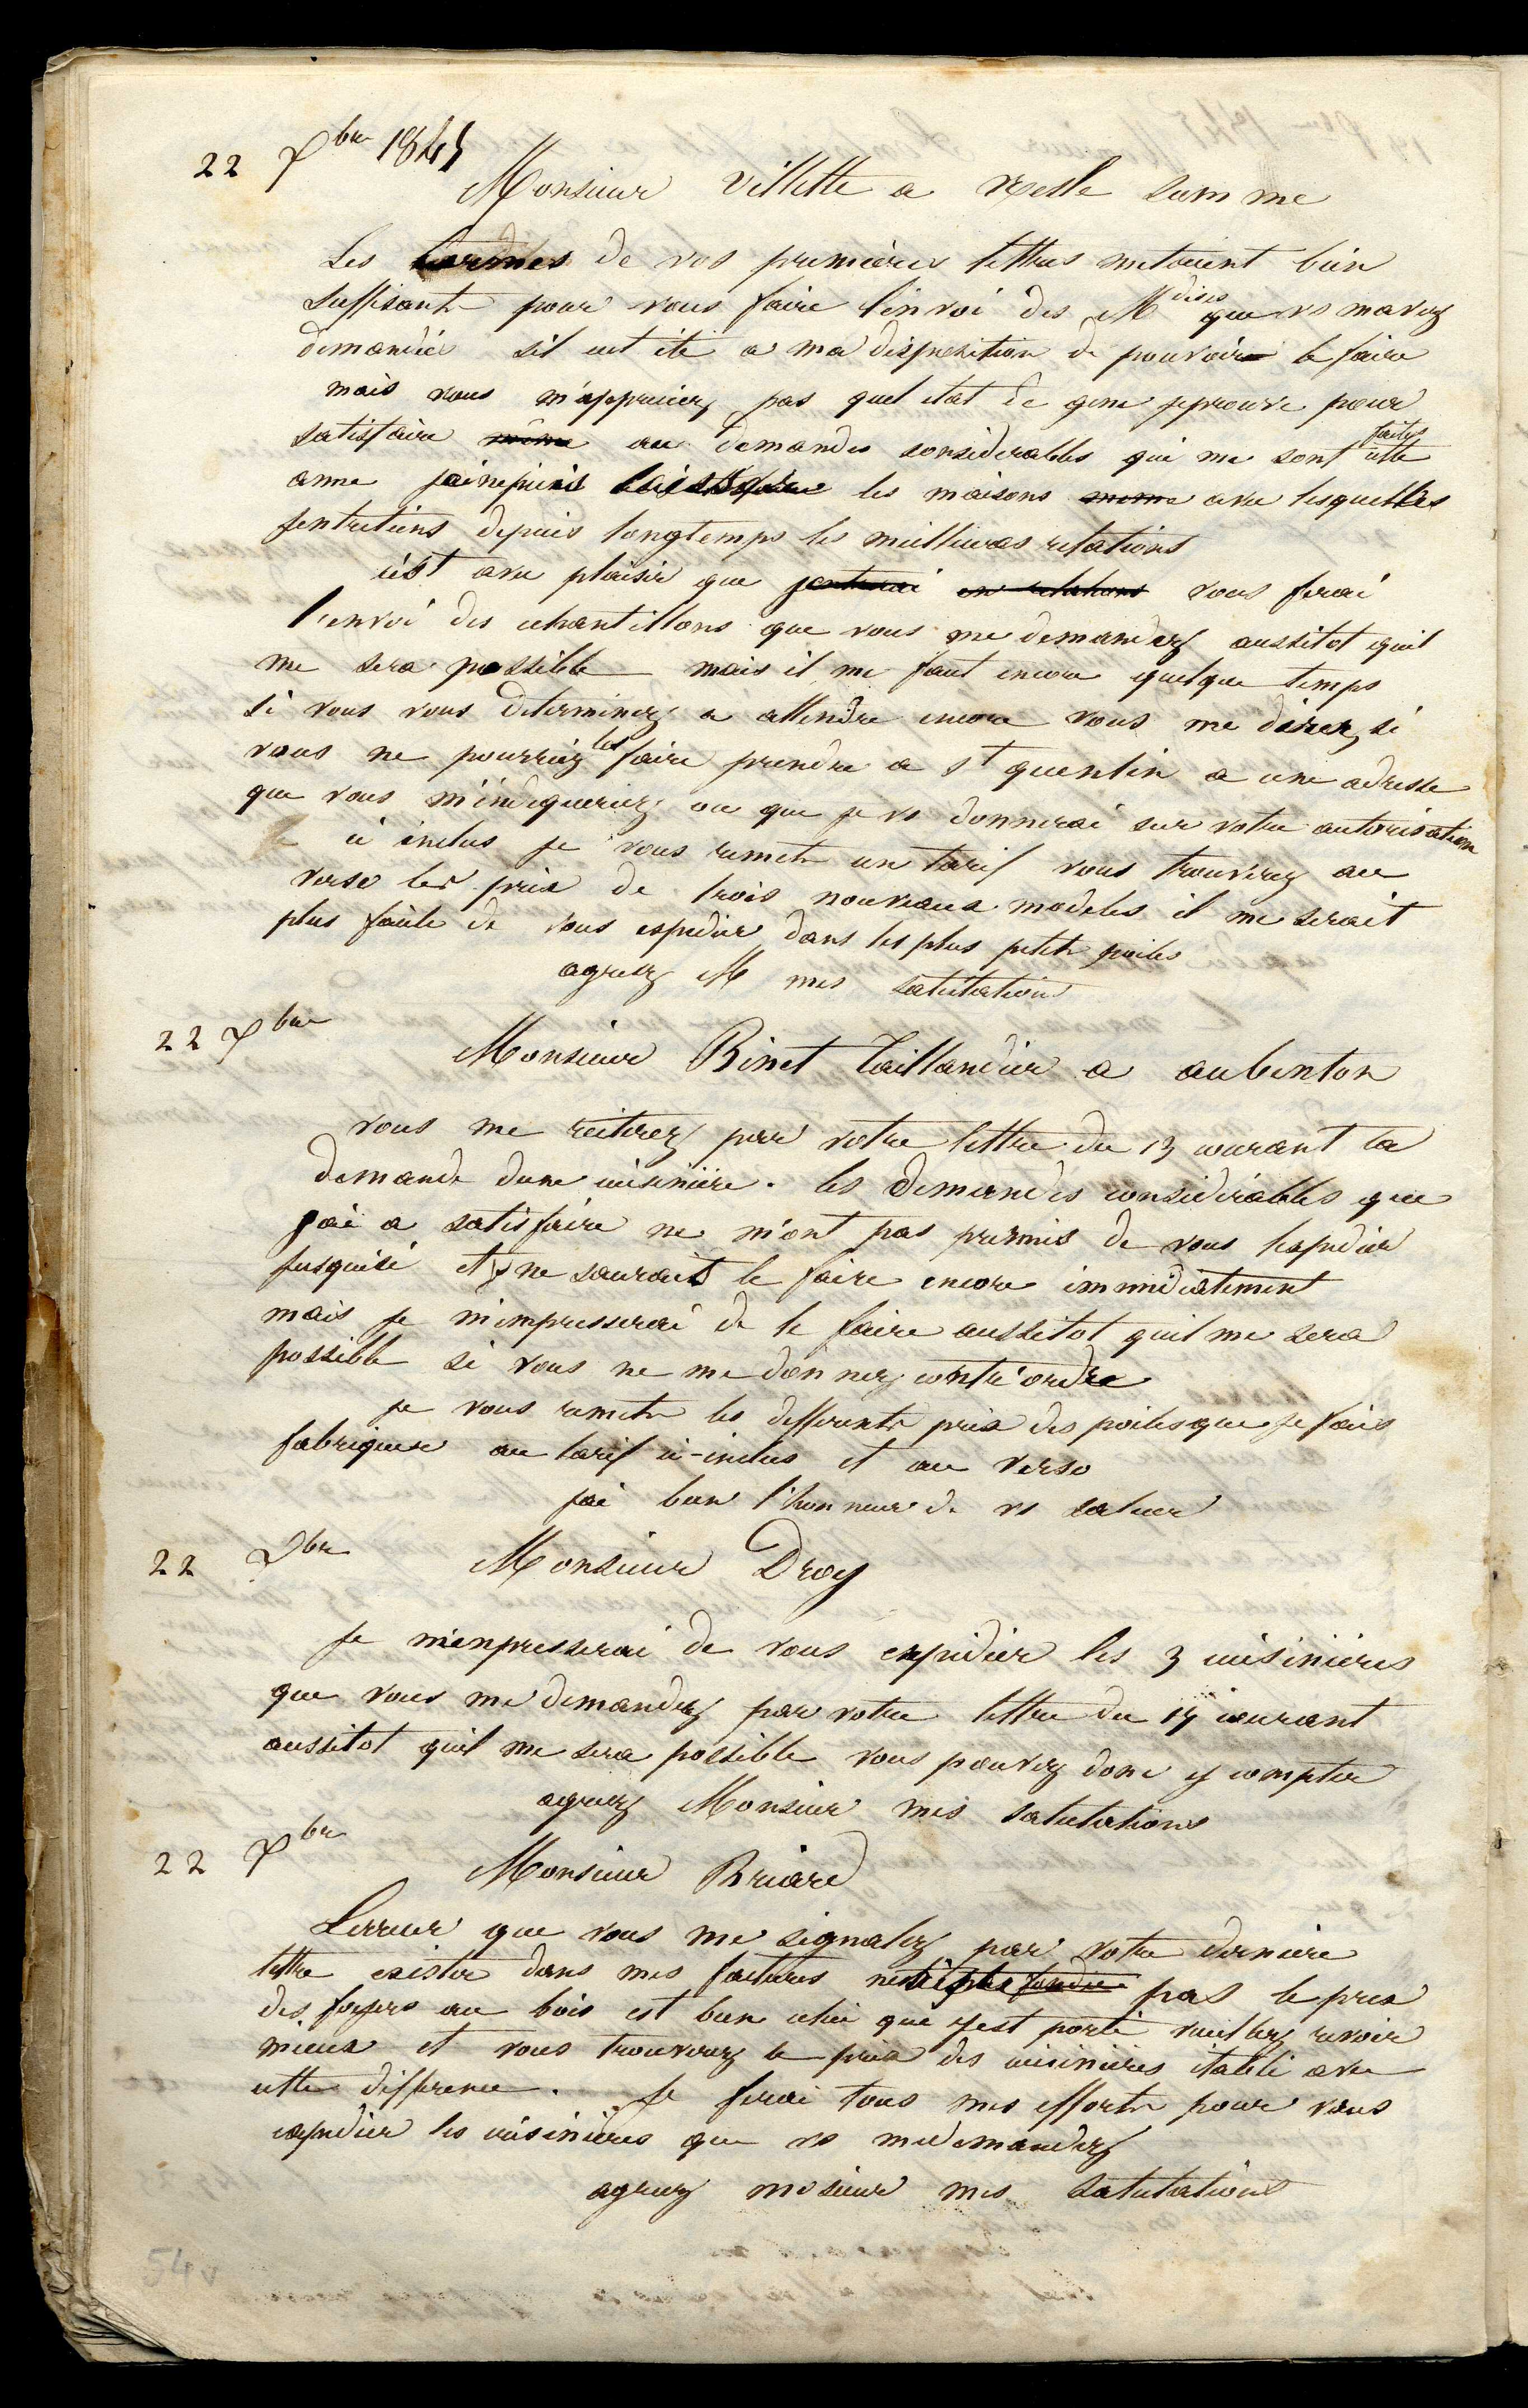 22 7bre 1845
Monsieur Villette a Nesle Somme
Les termes de vos premières lettres metaient bien
suffisants pour vous faire lenvoi des Mdises que vs mavez
demandée sil eut été a ma disposition de pouvoir le faire
mais vous n'appreciez pas quel etat de gene jeprouve pour
satisfaire au demandes considerables qui me sont faites cette
anne les maisons avec lesquelles
jentretiens depuis longtemps les meilleures relations
c'est avec plaisir que jentrerai en relations vous ferai
l'envoi des echantillons que vous me demandez aussitot quil
me sera possible mais il me faut encore quelque temps
si vous vous determinez a attendre encore vous me direz si
vous ne pourriez les faire prendre a St quentin a une adresse
que vous m'indiqueriez ou que je vs donnerai sur votre autorisation
ci inclus je vous remets un tarif vous trouverez au
verso les prix de trois nouveaux modeles il me serait
plus facile de vous expedier dans les plus petits poiles
agreez M mes salutations
22 7bre
Monsieur Binet Taillandier a aubenton
vous me reiterez par votre lettre du 13 courant la
demande dune cuisinière. les demandes considérables que
jai a satisfaire ne m'ont pas permis de vous lexpedier
jusquici et je ne saurait le faire encore immediatement
mais je m'empresserai de le faire aussitot quil me sera
possible si vous ne me donnez contr'ordre
je vous remets les differents prix des poiles que je fais
fabriquer au tarif ci-inclus et au verso
jai bien l'honneur de vs saluer
22 7bre
Monsieur Droy
Je m'enpresserai de vous expédier les 3 cuisinières
que vous me demandez par votre lettre du 19 courant
aussitot quil me sera possible vous pouvez donc y compter
agreez Monsieur mes salutations
22 7bre
Monsieur Briard
Lerreur que vous me signalez par votre derniere
lettre exister dans mes factures pas le prix
des foyers au bois est bien celui qui y est porté veuillez revoir
mieux et vous trouverez le prix des cuisinieres etabli avec
cette difference. Je ferai tous mes efforts pour vous
expedier les cuisinières que vs me demandez
agreez mosieur mes salutations
54v